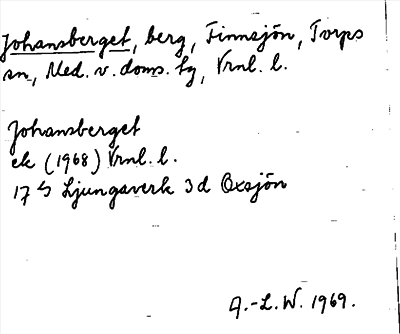 Johansberget, berg, Finnsjön, Torps
sn, Med. v. doms. tg, Vrnl. l.
Johansberget
ek (1968) Vrnl. l.
17 G Ljungaverk 3d Oxsjön
A.-L.W. 1969.